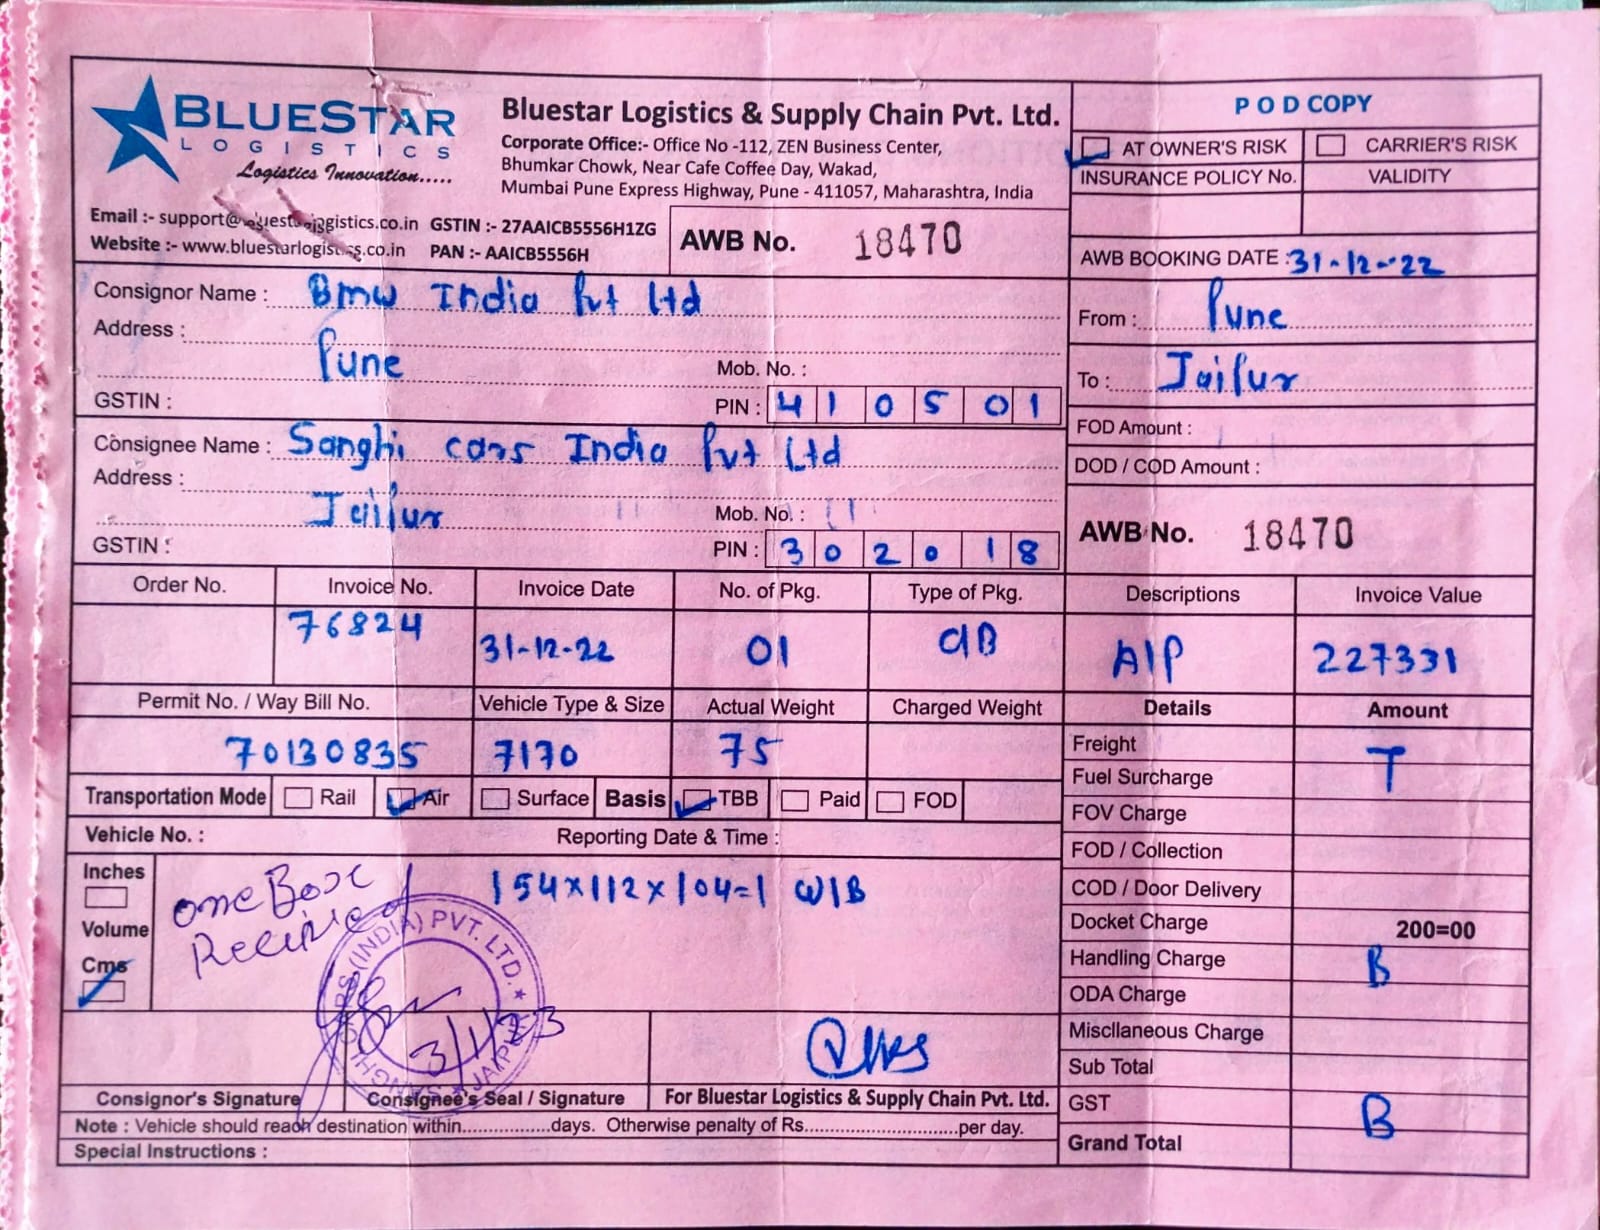 BLUESTAR
LOGISTICS
Logistics Innovation.....
Bluestar Logistics & Supply Chain Pvt. Ltd.
Corporate Office:- Office No -112, ZEN Business Center,
Bhumkar Chowk, Near Cafe Coffee Day, Wakad,
Mumbai Pune Express Highway, Pune - 411057, Maharashtra, India
Email :- support@bluestarlogistics.co.in GSTIN :- 27AAICB5556H1ZG
Website :- www.bluestarlogistics.co.in PAN :- AAICB5556H
AWB No. 18470
POD COPY
AT OWNER'S RISK CARRIER'S RISK
INSURANCE POLICY No. VALIDITY
AWB BOOKING DATE : 31-12-22
Consignor Name : Bmw India Pvt Ltd
Address :
Pune
Mob. No. :
GSTIN : PIN : 410501
From : Pune
To : Jaipur
FOD Amount :
DOD / COD Amount :
Consignee Name : Sanghi cars India Pvt Ltd
Address :
Jaipur
Mob. No. :
GSTIN : PIN : 302018
AWB No. 18470
Order No. Invoice No. Invoice Date No. of Pkg. Type of Pkg. Descriptions Invoice Value
76824 31-12-22 01 CIB AIP 227331
Permit No. / Way Bill No. Vehicle Type & Size Actual Weight Charged Weight Details Amount
70130835 7170 75
Transportation Mode Rail Air Surface Basis TBB Paid FOD
Vehicle No. : Reporting Date & Time :
Inches
Volume
Cms
one Box
Recived
154x112x104=1 W/B
SANGHI CARS (INDIA) PVT. LTD. ★ JAIPUR ★
3/1/23
Consignor's Signature Consignee's Seal / Signature For Bluestar Logistics & Supply Chain Pvt. Ltd.
Note : Vehicle should reach destination within..................days. Otherwise penalty of Rs................................per day.
Special Instructions :
Freight T
Fuel Surcharge
FOV Charge
FOD / Collection
COD / Door Delivery
Docket Charge 200=00
Handling Charge B
ODA Charge
Miscllaneous Charge
Sub Total
GST B
Grand Total